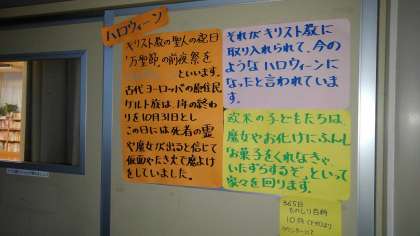 ハロウィーン
キリスト教の聖人の祝日
「万聖節」の前夜祭を
といいます。
古代ヨーロッパの原住民
ケルト族は、1年の終わ
りを10月31日とし
この日には死者の霊
や魔女が出ると信じて
仮面やたき火で魔よけ
をしていました。
それがキリスト教に
取り入れられて、今の
ようなハロウィーンに
なったと言われていま
す。
欧米の子どもたちは
魔女やお化けにふんし
「お菓子をくれなきゃ
いたずらするぞ」といって
家々を回ります。
365日
ものしり百科
10月